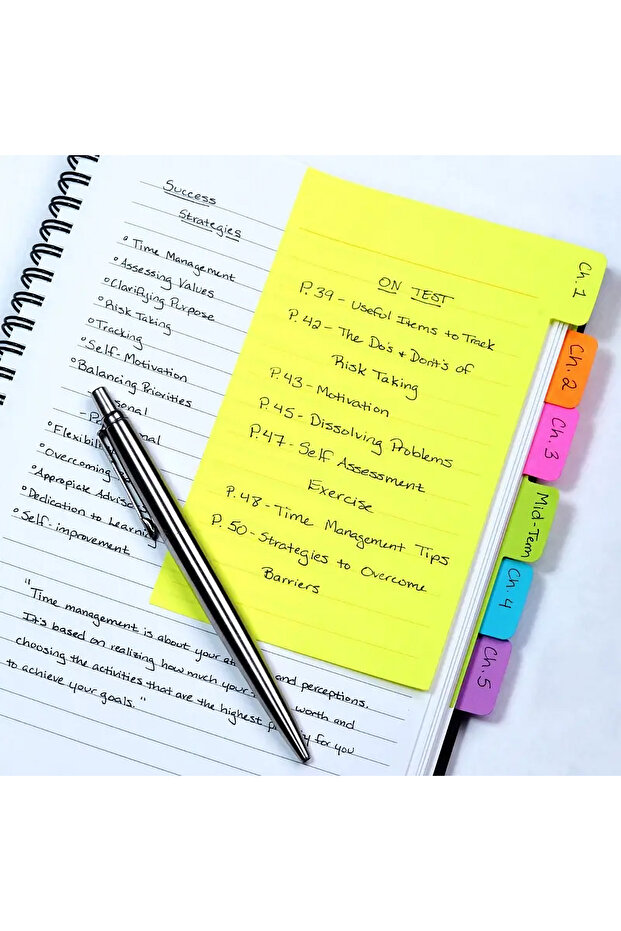 Success
Strategies
° Time Management
° Assessing Values
° Clarifying Purpose
° Risk Taking
° Tracking
° Self-Motivation
° Balancing Priorities
° Overcoming
° Dedication to Learning
° Self-improvement
"Time management is about your and perceptions.
It's based on realizing how much your worth and
choosing the activities that are the highest for you
to achieve your goals."
ON TEST
P.39 - Useful Items to Track
P.42 - The Do's & Dont's of
Risk Taking
P.43 - Motivation
P.45 - Dissolving Problems
P.47 - Self Assessment
Exercise
P.48 - Time Management Tips
P.50 - Strategies to Overcome
Barriers
Ch. 1
Ch. 2
Ch. 3
Mid-Term
Ch. 4
Ch. 5